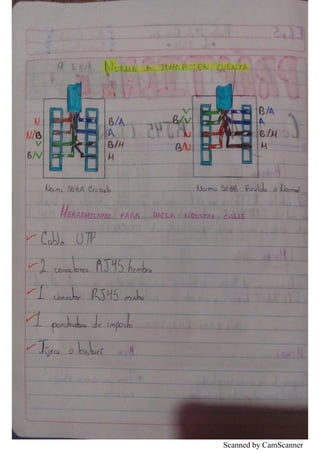 NORMA A TOMAR EN CUENTA
N
N/B
V
B/V
B/A
A
B/M
M
V
B/V
N
B/N
B/A
A
B/M
M
Norma 568A Cruzado
Norma 568B Paralelo o Normal
HERRAMIENTAS PARA HACER NUESTRO CABLE
Cable UTP
2 conectores RJ45 hembra
1 conector RJ45 macho
1 ponchadora de impacto
Tijera o bisturí
Scanned by CamScanner